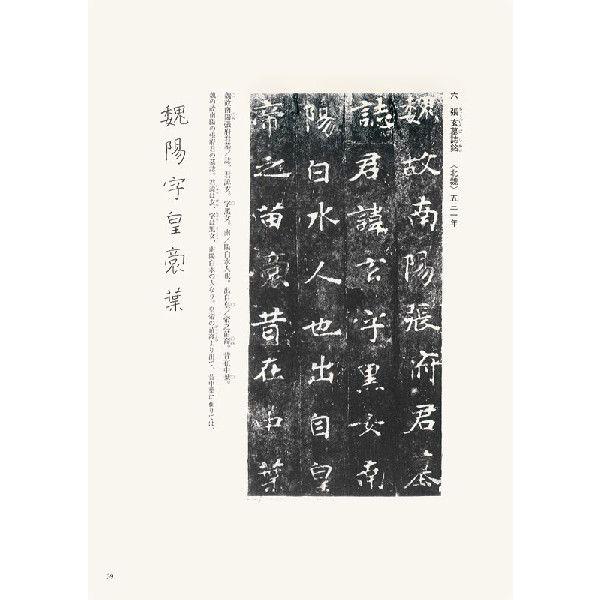 六 張玄墓誌銘 〈北魏〉 五三一年
魏故南陽張府君墓
誌君諱玄字黑女南
陽白水人也出自皇
帝之苗裔昔在中葉
魏故南陽張府君墓／誌。君諱玄、字黑女。南／陽白水人也。出自皇／帝之苗裔。昔在中葉。
魏の故南陽の張府君の墓誌。君諱は玄、字は黑女、南陽白水の人なり。皇帝の苗裔より出で、昔中葉に
魏陽字皇裔葉
39